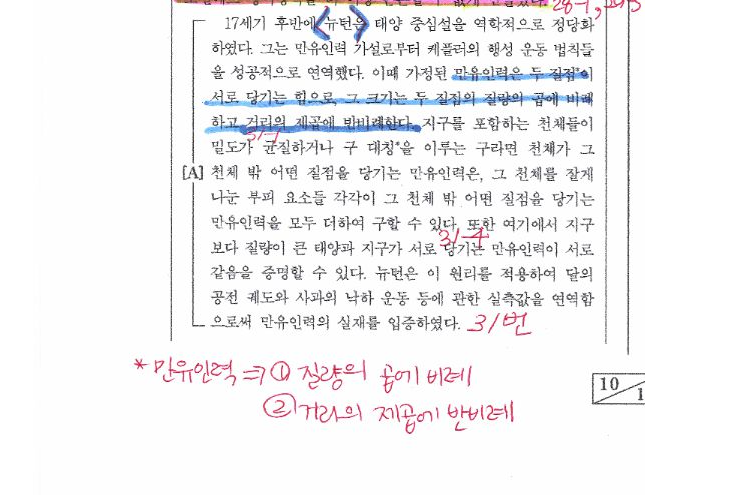 28-1,
17세기 후반에 <뉴턴은> 태양 중심설을 역학적으로 정당화
하였다. 그는 만유인력 가설로부터 케플러의 행성 운동 법칙들
을 성공적으로 연역했다. 이때 가정된 만유인력은 두 질점*이
서로 당기는 힘으로, 그 크기는 두 질점의 질량의 곱에 비례
하고 거리의 제곱에 반비례한다. 지구를 포함하는 천체들이
31-1
밀도가 균질하거나 구 대칭*을 이루는 구라면 천체가 그
[A] 천체 밖 어떤 질점을 당기는 만유인력은, 그 천체를 잘게
나눈 부피 요소들 각각이 그 천체 밖 어떤 질점을 당기는
만유인력을 모두 더하여 구할 수 있다. 또한 여기에서 지구
31-4
보다 질량이 큰 태양과 지구가 서로 당기는 만유인력이 서로
같음을 증명할 수 있다. 뉴턴은 이 원리를 적용하여 달의
공전 궤도와 사과의 낙하 운동 등에 관한 실측값을 연역함
으로써 만유인력의 실재를 입증하였다. 31번
*만유인력 ⇒ ① 질량의 곱에 비례
② 거리의 제곱에 반비례
10